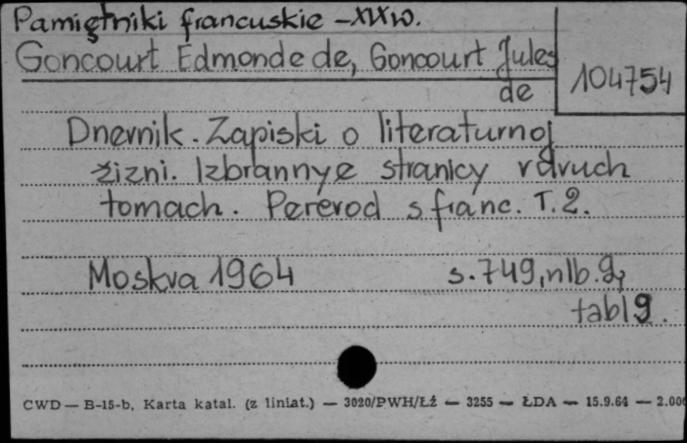 Pamiętniki francuskie -XIXw.
Goncourt Edmonde de, Goncourt Jules
de
104754
Dnevnik. Zapiski o literaturnoj
žizni. Izbrannye stranicy v dvuch
tomach. Perevod s franc. T.2.
Moskva 1964 s.749, nlb.2,
tabl 9.
CWD — B-15-b, Karta katal. (z liniat.) — 3020/PWH/Łź — 3255 — ŁDA — 15.9.64 — 2.000